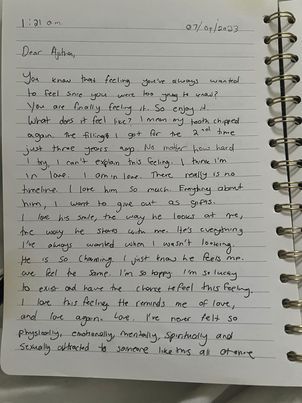 1:21 am 07/07/2023
Dear
You know that feeling you've always wanted
to feel since you were too young to know?
You are finally feeling it. So enjoy it.
What does it feel like? I mean my tooth chipped
again. The fillings I got for the 2nd time
just three years ago. No matter how hard
I try, I can't explain this feeling. I think I'm
in love. I am in love. There really is no
timeline. I love him so much. Everything about
him, I want to give out as gifts.
I love his smile, the way he looks at me,
the way he stares with me. He's everything
I've always wanted when I wasn't looking.
He is so charming. I just know he feels me.
We feel the same. I'm so happy. I'm so lucky
to exist and have the chance to feel this feeling.
I love this feeling. He reminds me of love,
and love again. Love. I've never felt so
physically, emotionally, mentally, spiritually and
sexually attracted to someone like this all at once